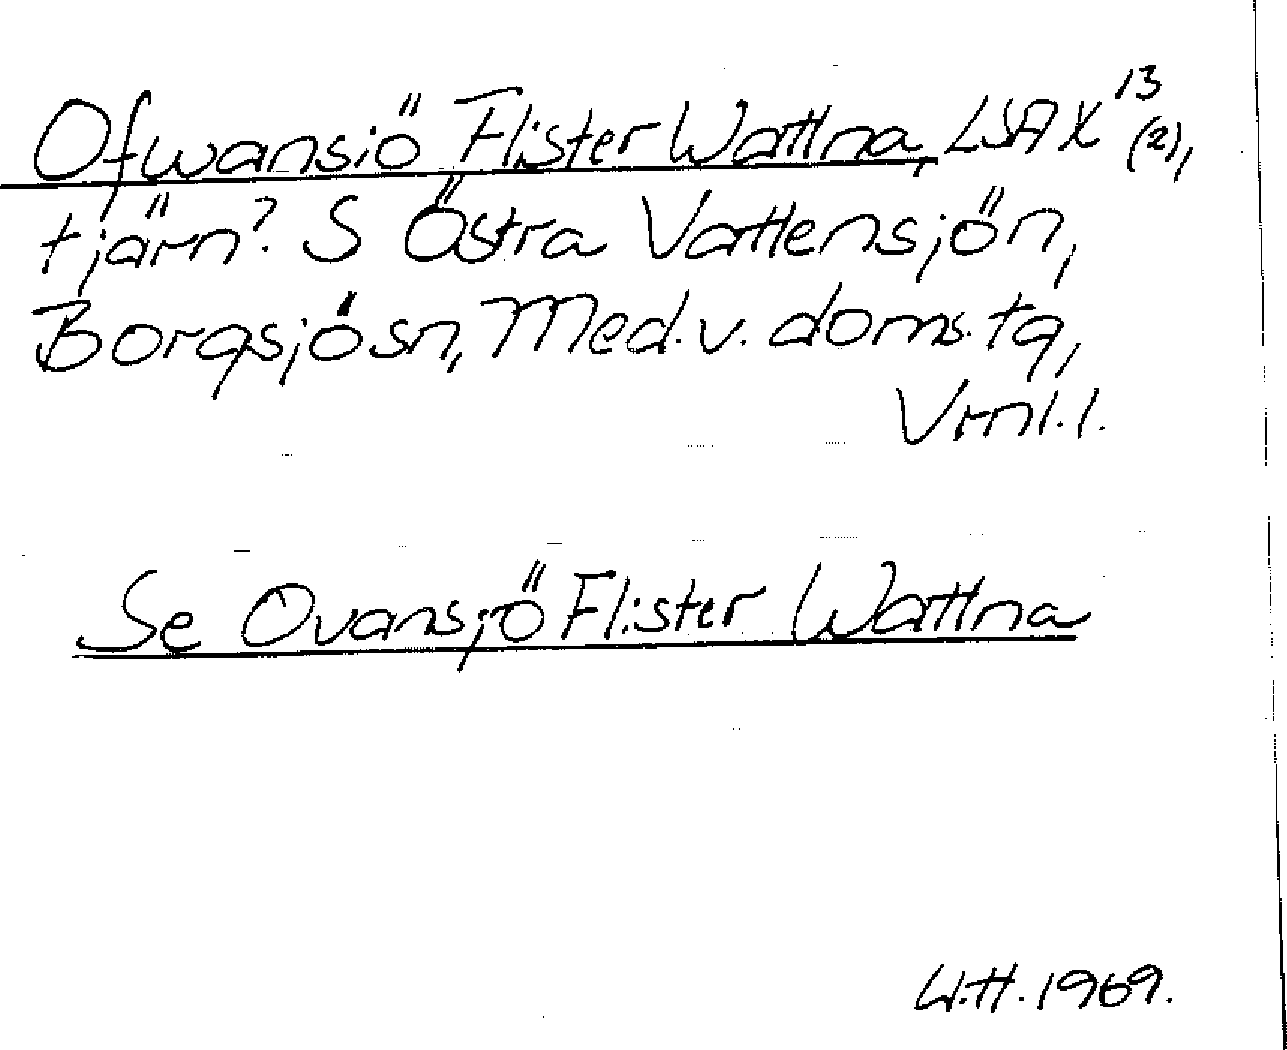 Ofwansiö Flister Wattna, LSA X 13 (2),
tjärn? S Östra Vattensjön,
Borgsjö sn, Med. v. doms. tg,
Vrnl. l.
Se Ovansjö Flister Wattna
W.H. 1969.